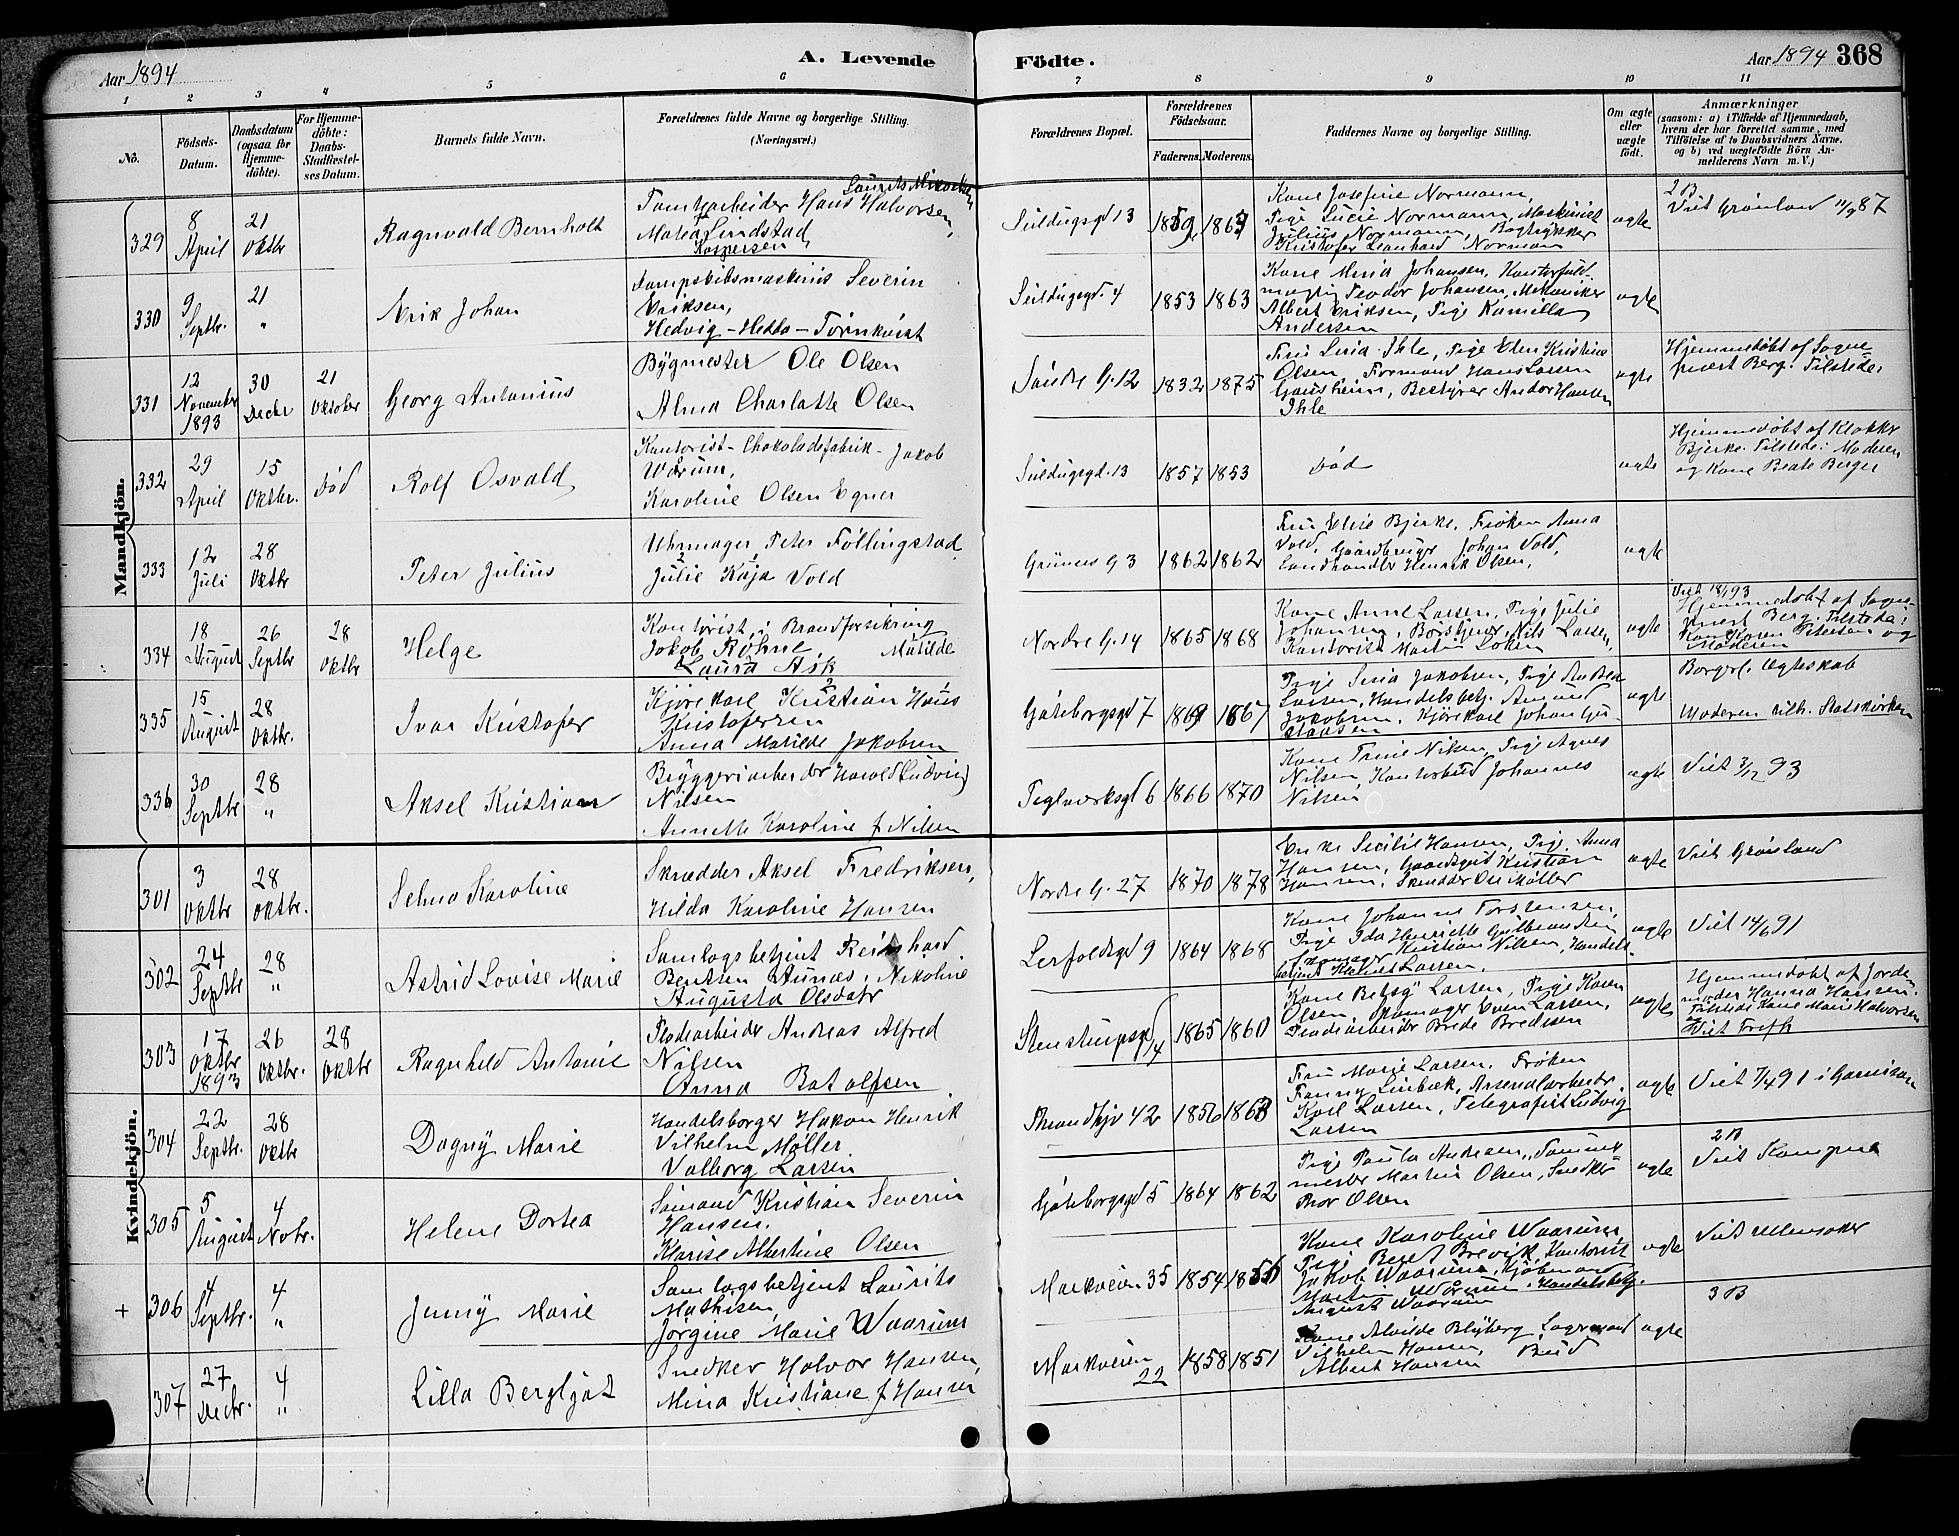 Aar 1894
A. Levende
Födte.
Aar 1894 368
1 2 3 4 5 6 7 8 9 10 11
No.
Födsels-Datum.
Daabsdatum (ogsaa for Hjemme-döbte).
For Hjemme-döbte: Daabs-Stadfæstel-ses Datum.
Barnets fulde Navn.
Forældrenes fulde Navne og borgerlige Stilling. (Næringsvei.)
Forældrenes Bopæl.
Forældrenes Födselsaar.
Faderens. Moderens.
Faddernes Navne og borgerlige Stilling.
Om ægte eller uægte födt.
Anmærkninger
(saasom: a) i Tilfælde af Hjemmedaab, hvem der har forrettet samme, med Tilföielse af to Daabsvidners Navne, og b) ved uægtefödte Börn Anmelderens Navn m. V.)
Mandkjön.
329
8 April
21 Oktbr
Ragnvald Bernholt
Hans Halvorsen,
Lindstad
Kaspersen
13
Kone Josefine Normann,
Pige Lucie Normann, Maskinist
Julius Normann, Bogtrykker
Kristofer Leonhard Norman
ægte
2 B
Viet Grønland 11/9 87
330
9 Septbr.
21 "
Erik Johan
Severin
Eriksen,
Hedvig - Hedda - Törnkvist
4
1853 1863
Kone Maria Johansen, Kontorfuld-
mægtig Teodor Johansen, Mekaniker
Albert Eriksen, Pige Kamilla
Andersen
ægte
331
12 November 1893
30 Decbr
21 Oktober
Georg Antonius
Bygmester Ole Olsen
Alma Charlotte Olsen
Söndre G. 12
1832 1875
Olsen, Formand Hans Larsen
Bestyrer Andor Hansen
Ihle
ægte
Hjemmedøbt af Sogne
prest Berg. Tilstede:
332
29 April
15 Oktbr.
Död
Rolf Osvald
Kontorist - Chokoladefabrik - Jakob
Wårum,
Karoline Olsen Egner
13
1857 1853
Död
ægte
Hjemmedöbt af Klokker
Bjerke. Tilstede: Moderen
og Kone Beate Berger
333
12 Juli
28 Oktbr
Peter Julius
Uhrmager, Peter Föllingstad
Julie Kaja Vold
Grüners G 3
1862 1862
Fru Elise Bjerke, Frøken Anna
Vold, Gaardbruger Johan Vold,
Landhandler Henrik Olsen,
ægte
334
18 August
26 Septbr
28 Oktbr
Helge
Kontorist, i Brandforsikring
Jakob Röhne,
Laura Matilde Ask
Nordre G. 14
1865 1868
Kone Anne Larsen, Pige Julie
Johansen, Nils Larsen,
Kontorist Martin Löken
ægte
Hjemmedøbt af Sogne-
prest Berg, Tilstede:
Kone Karen Petersen og
Moderen
335
15 August
28 Oktbr.
Ivar Kristofer
Kjörekarl Kristian Hans
Kristofersen
Anna Matilde Jakobsen
Göteborgsgd 7
1869 1867
Pige Sina Jakobsen, Pige Andrea
Larsen, Handelsbetj. Amund
Jakobsen, Kjörekarl Johan Gu-
stavsen
ægte
Borgerl. Ægteskab
Moderen tilh. Statskirken
336
30 Septbr
28 "
Aksel Kristian
Bryggeriarbeider Harald Ludvig
Nilsen
Annette Karoline f Nilsen
Teglverksgd 6
1866 1870
Kone Trine Nilsen, Pige Agnes
Nilsen, Kontorbud Johannes
Nilsen
ægte
Viet 3/12 93
Kvindekjön.
301
3 Oktbr
28 Oktbr.
Selma Karoline
Skrædder Aksel Fredriksen,
Hilda Karoline Hansen
Nordre G. 27
1870 1878
Enke Sicilie Hansen, Pige Anna
Hansen, Kristian
Hansen, Skrædder Ole Möller
ægte
Viet Grønland
302
24 Septbr
28 "
Astrid Lovise Marie
Samlagsbetjent Reinhard
Bentsen Aunæs, Nikoline
Augusta Olsdatr
Lerfoldsgd 9
1864 1868
Kone Johanne Torstensen,
Pige Ida Henriette Gulbrandsen,
Skomager Kristian Nilsen, Handels-
betjent Larsen.
ægte
Viet 14/6 91
303
17 Oktbr 1893
26 Oktbr.
28 Oktbr
Ragnhild Antonie
Andreas Alfred
Nilsen
Anna Botolfsen
Stenstrupsgd 4
1865 1860
Kone Betsy Larsen, Pige Karen
Olsen, Skomager Even Larsen,
Brede Bredsen
ægte
Hjemmedøbt af Jorde-
moder Hanna Hansen.
Tilstede Kone Marie Halvorsen
Viet Trefk
304
22 Septbr.
28 Oktbr
Dagny Marie
Handelsborger Hakon Henrik
Vilhelm Möller
Valborg Larsen
42
Fru Marie Larsen, Frøken
Fanny Linbæk, Arsenalarbeider
Karl Larsen, Telegrafist Ludvig
Larsen
ægte
Viet 7/4 91 i Garnison
305
5 August
4 Novbr.
Helene Dortea
Sömand Kristian Severin
Hansen.
Karise Albertine Olsen
Göteborgsgd 5
1864 1862
Pige Paula Andersen, Tömmer-
mester Martin Olsen, Snedker
Thor Olsen
ægte
2 B
Viet Kampen
+
306
4 Septbr.
4 "
Jenny Marie
Samlagsbetjent Laurits
Mathisen,
Jörgine Marie Waarum
Markveien 35
1854
Kone Karoline Waarum,
Pige Beret Brevik, Kontorist
Jakob Waarum, Kjöbmand
Martin Wårum, Handelsbetj.
August Waarum
ægte
Viet Ullensaker
307
27 Decbr.
4 "
Lilla Bergljot
Snedker Halvor Hansen,
Mina Kristiane f Hansen
Markveien 22
1858 1851
Kone Alvilde Blyberg, Lagermand
Vilhelm Hansen, Bud
Albert Hansen
ægte
3 B